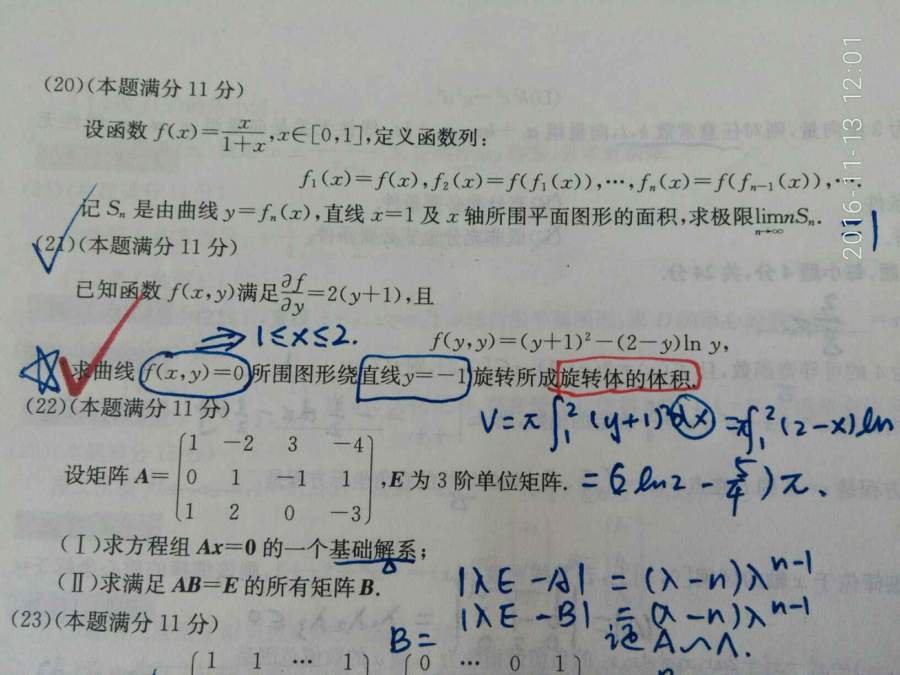 (20)(本题满分 11 分)
设函数 f(x)=x/(1+x),x∈[0,1],定义函数列:
f₁(x)=f(x),f₂(x)=f(f₁(x)),…,fₙ(x)=f(fₙ₋₁(x)),….
记 Sₙ 是由曲线 y=fₙ(x),直线 x=1 及 x 轴所围平面图形的面积,求极限 lim n→∞ nSₙ. =1
(21)(本题满分 11 分)
已知函数 f(x,y)满足 ∂f/∂y=2(y+1),且
⇒ 1≤x≤2.
f(y,y)=(y+1)²-(2-y)ln y,
求曲线 f(x,y)=0 所围图形绕直线 y=-1 旋转所成旋转体的体积.
(22)(本题满分 11 分)
V=π∫₁²(y+1)²dx =π∫₁²(2-x)ln
设矩阵 A=(1 -2 3 -4
0 1 -1 1
1 2 0 -3),E 为 3 阶单位矩阵.
=(2ln2-5/4)π.
(Ⅰ)求方程组 Ax=0 的一个基础解系;
(Ⅱ)求满足 AB=E 的所有矩阵 B.
|λE-A|=(λ-n)λⁿ⁻¹
|λE-B|=(λ-n)λⁿ⁻¹
(23)(本题满分 11 分)
B= A∽Λ.
1 1 … 1 0 … 0 1
2016-11-13 12:01